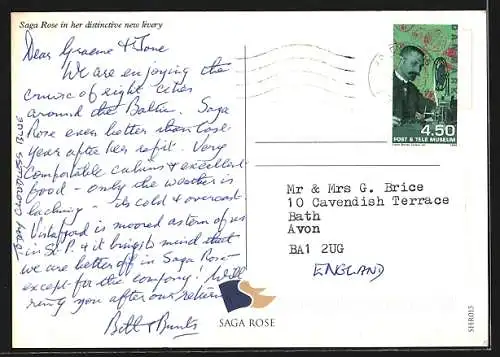 Saga Rose in her distinctive new livery
Dear Graeme & Jane
We are enjoying the
cruise of eight cities
around the Baltic. Saga
Rose even better than last
year after her refit. Very
comfortable cabins & excellent
food - only the weather is
lacking - its cold & overcast.
Vistafjord is moored astern of us
in St. P. & it brings mind that
we are better off in Saga Rose -
except for the company! Will
ring you after our return
Bill &
TODAY CLOUDLESS BLUE
SAGA ROSE
DANMARK
4.50
POST & TELE MUSEUM
Mr & Mrs G. Brice
10 Cavendish Terrace
Bath
Avon
BA1 2UG
ENGLAND
SFER015